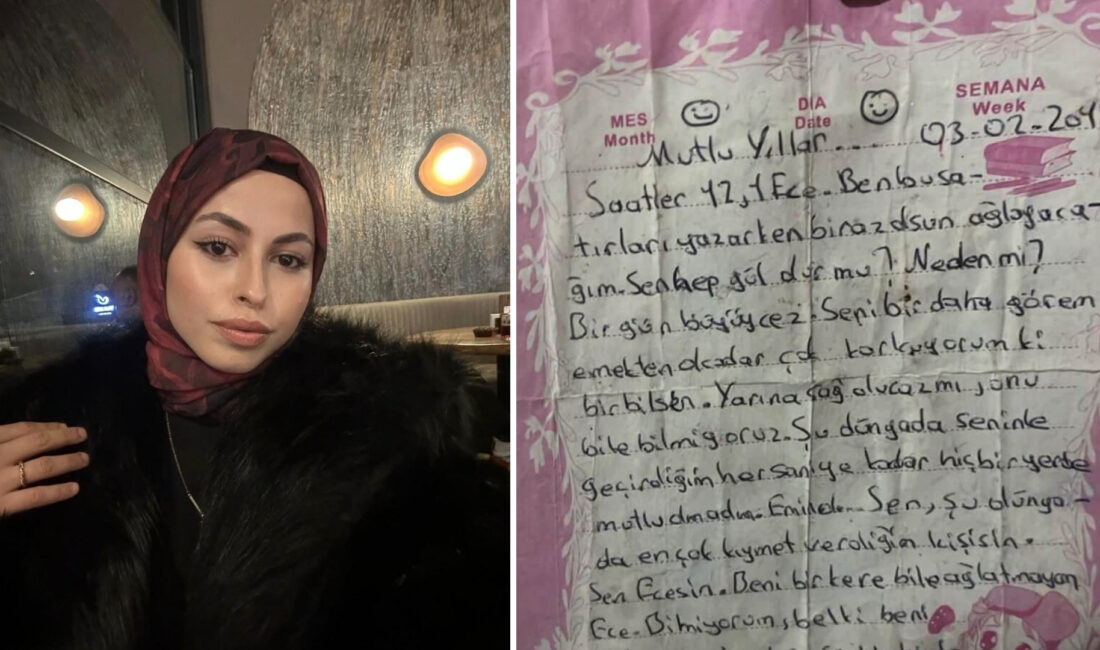 MES
Month
DIA
Date
SEMANA
Week
Mutlu Yıllar.... 03-02-201
Saatler 12,1 Ece. Ben bu sa-
tırları yazarken biraz dsun ağlayaca-
ğım. Sen hep gül dur mu? Neden mi?
Bir gün büyüycez. Seni bir daha görem
emekten okadar çok korkuyorum ki
bir bilsen. Yarına sağ olucazmı, onu
bile bilmiyoruz. Şu dünyada seninle
geçirdiğim her saniye kadar hiçbir yerde
mutlu olmadım. Sen, şu dünya-
da en çok kıymet verdiğim kişisin.
Sen Ecesin. Beni bir kere bile ağlatmayan
Ece. Bilmiyorum, belki beni